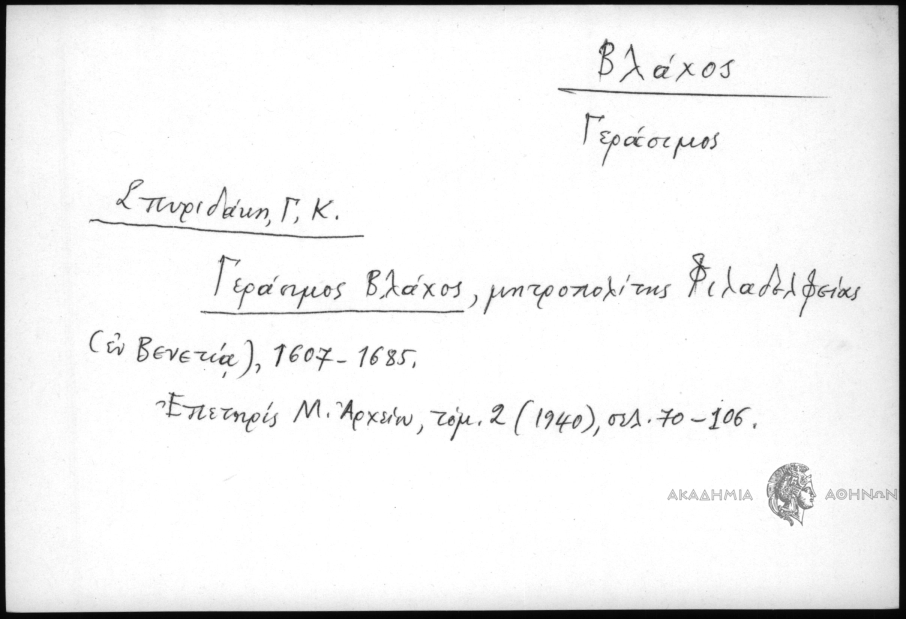 Βλάχος
Γεράσιμος
Σπυριδάκη, Γ. Κ.
Γεράσιμος Βλάχος, μητροπολίτης Φιλαδελφείας
(ἐν Βενετίᾳ), 1607-1685.
Ἐπετηρίς Μ. Ἀρχείου, τόμ. 2 (1940), σελ. 70-106.
ΑΚΑΔΗΜΙΑ ΑΘΗΝΩΝ